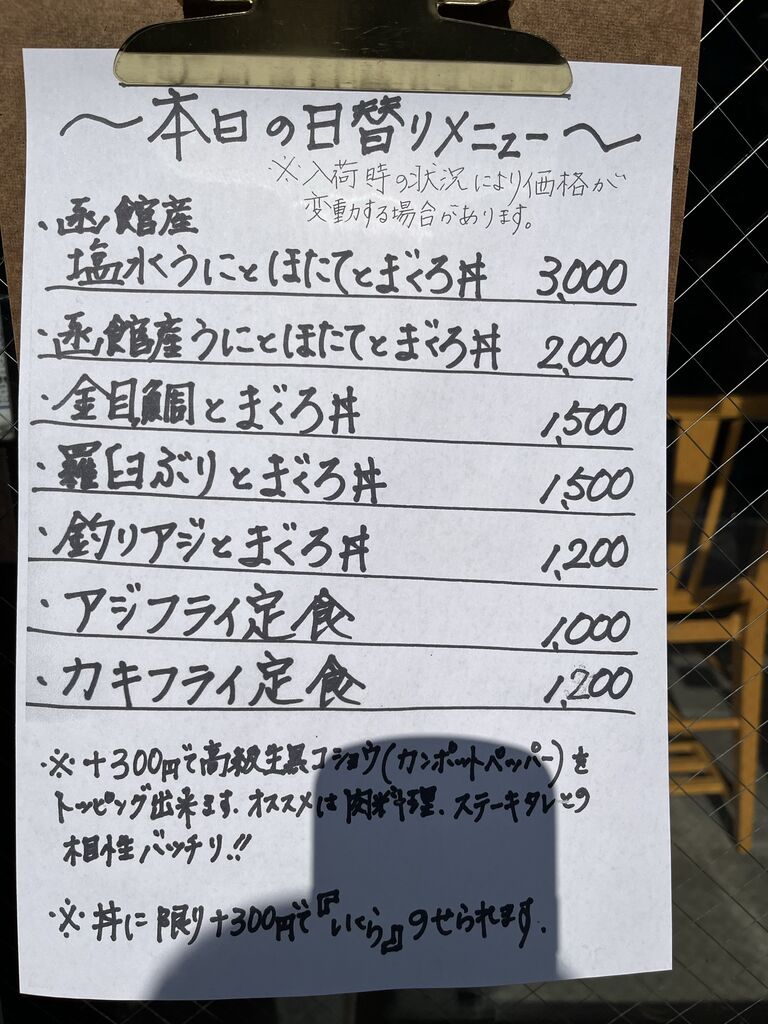 〜本日の日替りメニュー〜
※入荷時の状況により価格が
変動する場合があります。
・函館産
塩水うにとほたてとまぐろ丼 3,000
・函館産うにとほたてとまぐろ丼 2,000
・金目鯛とまぐろ丼 1,500
・羅臼ぶりとまぐろ丼 1,500
・釣りアジとまぐろ丼 1,200
・アジフライ定食 1,000
・カキフライ定食 1,200
※+300円で高級生黒コショウ(カンポットペッパー)を
トッピング出来ます。オススメは肉料理、ステーキタレとの
相性バッチリ!!
※丼に限り+300円で『いくら』のせられます。